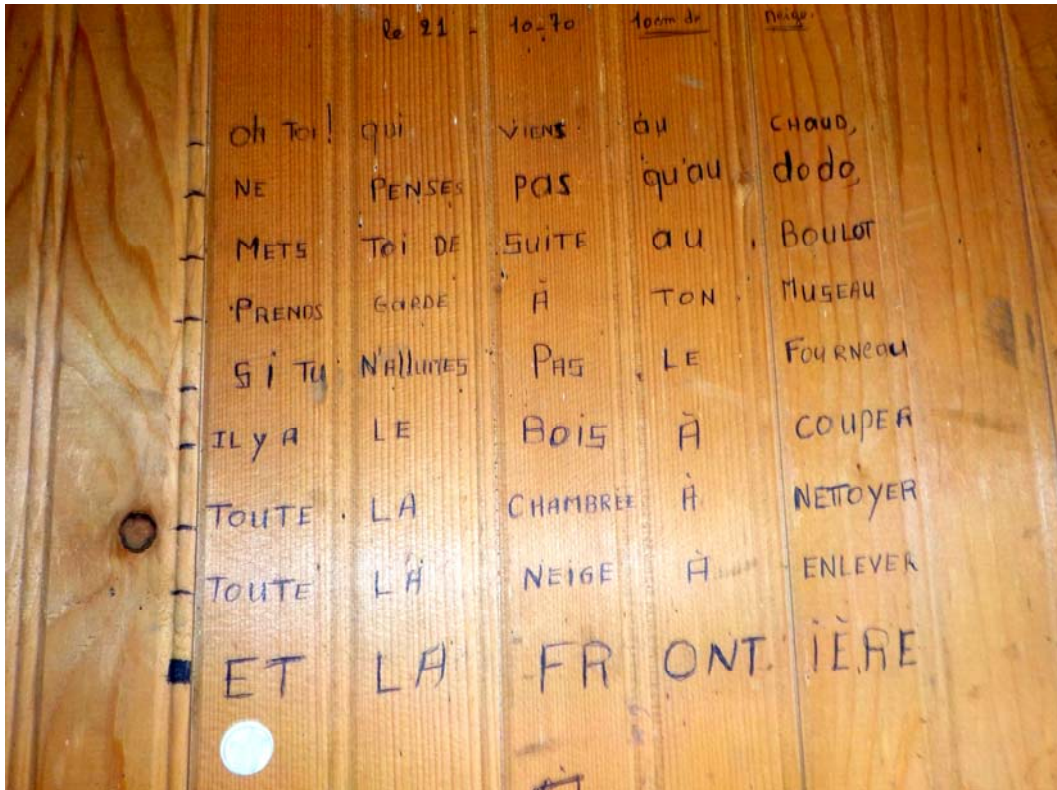 le 21 - 10-70 10cm de neige.
- Oh Toi! qui VIENS au CHAUD,
- NE PENSES PAS qu'au dodo,
- METS TOI DE SUITE au BOULOT
- PRENDS GARDE À TON MUSEAU
- Si TU N'ALLUMES PAS LE FOURNEAU
- IL Y A LE BOIS À COUPER
- TOUTE LA CHAMBRÉE À NETTOYER
- TOUTE LA NEIGE À ENLEVER
ET LA FRONTIÈRE
À